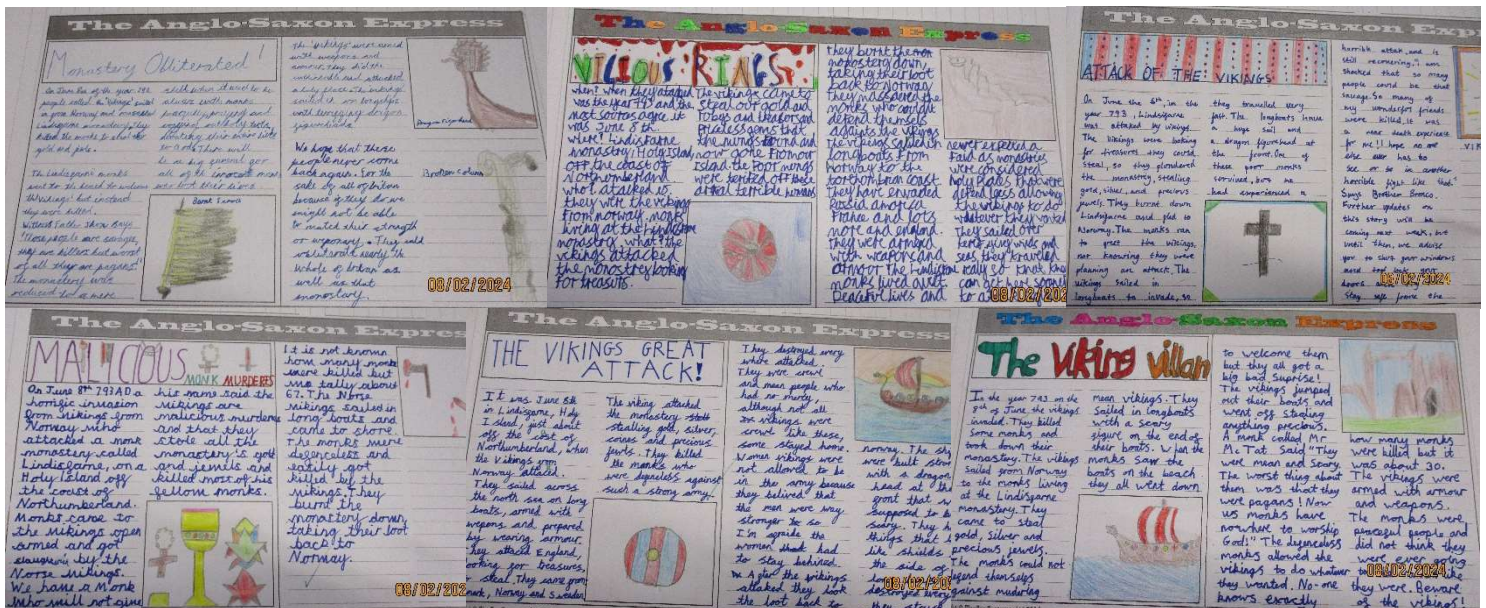 The Anglo-Saxon Express
Monastery Obliterated!
On June 8th of the year 793
The Lindisfarne monks
went to the beach to welcome
the vikings but instead
they were killed.
"These people are savages,
they are killers but worst
of all they are pagans!"
the monastery was
reduced to a mere
Burnt Scroll
The vikings were armed
with weapons and
armour, they did the
We hope that these
people never come
back again. For the
sake of all of britan
because if they do we
might not be able
to match their strength
or weponary. They could
well as that
monastery.
Dragon Figurehead
Broken Column
08/02/2024
The Anglo-Saxon Express
VICIOUS VIKINGS
when? when they atacked
was the year 793 and the
most sources agree it
was June 8th
where? Lindisfarne
monastery: Holy Island
off the coast of
Northumberland
who? attacked is
they wire the vikings
From norway. monks
living at the Lindisfarne
monastry. what? the
vikings attacked
the monastrey looking
for treasuts.
The vikings came to
steal our gold and
Priceless gems that
now gone. From our
island the Poor monks
they burnt the
monostery down,
taking their loot
back to Norway
They massacred the
monks who could
defend themsels
againts the vikings
The vikings sailed in
longboats From
norway to the
northumbrian coast
They have envaded
Russia america
France and lots
more and england.
they were armed
with weapons and
armor The Lindisfarn
monks lived quiet
Peaceful lives and
never expected a
Raid as monasteries
were considered
Holy Places that were
defenceless, allowing
the vikings to do
whatever they wanted
They sailed over
08/02/202
The Anglo-Saxon Express
ATTACK OF THE VIKINGS
On June the 8th, in the
year 793, Lindisfarne
was attacked by vikings.
The vikings were looking
for treasures they could
steal, so they plundered
the monastery, stealing
gold, silver, and precious
jewels. They burnt down
Lindisfarne and fled to
Norway. The monks ran
to greet the vikings,
not knowing they were
planning an attack. The
vikings sailed in
longboats to invade, so
they travelled very
fast. The longboats have
a huge sail and
a dragon figurehead at
the front. One of
these poor monks
survived, bro
had experienced a
horrible attak, and is
still recovering. "I am
shocked that so many
people could be that
savage. So many of
my wonderful friends
were killed, it was
a near death experience
for me! I hope no one
else ever has to
see or be in another
horrible fight like that"
Says Brother Bronco.
Further updates on
this story will be
coming next week, but
until then, we advise
you to shut your windows
and lock your
doors.
Stay safe from the
08/02/2024
The Anglo-Saxon Express
MALICIOUS
MONK MURDERES
On June 8th 793 AD a
horrific invasion
from vikings from
Norway who
attacked a monk
monastery called
Lindisfarne, on a
Holy Island off
the coast of
Northumberland.
Monks came to
the vikings open
armed and got
by the
Norse vikings.
We have a Monk
who will not give
his name said the
vikings are
malicious murderers
and that they
stole all the
monastery's gold
and jewels and
killed most of his
fellow monks.
It is not known
how many monks
were killed but
we tally about
67. The Norse
vikings sailed in
long boats and
came to shore.
The monks were
defenceless and
eatily got
killed by the
vikings. They
burnt the
monastery down
taking their loot
back to
Norway.
08/02/202
The Anglo-Saxon Express
THE VIKINGS GREAT
ATTACK!
It was June 8th
in Lindisfarne, Holy
Island, just about
off the cost of
Northumberland, when
the vikings from
Norway attaced.
They sailed across
the north sea on long
boats, armed with
wepons and prepared
by wearing armour.
They attaced England,
looking for treasures,
to steal. They came from
The viking attacked
the monastery stole
stealling gold, silver,
connes and precious
jewls. They killed
the monks who
were defneless against
such a strong army.
They destroyed every
where attacked.
They were cruel
and mean people who
had no mercy,
although not all
or vikings were
cruel like these,
some stayed home.
Women vikings were
not allowed to be
in the army because
they believed that
the men were way
stronger so so
I'm afraide the
women had
to stay behined.
After the vikings
attacked they took
the loot back to
norway. The ship
were built stron
with a dragon
head at the
front that w
supposed to b
scary. They h
things that l
like shields
the side of
08/02/202
The Anglo-Saxon Express
The Viking villan
In the year 793 on the
8th of June the vikings
invaded. They killed
some monks and
took down their
monastery. The vikings
sailed from Norway
to the monks living
at the Lindisfarne
monastery. They
came to steal
gold, silver and
precious jewels.
The monks could not
defend themselfs
against muduring
mean vikings. They
sailed in longboats
with a scary
figure on the end of
their boats. When the
monks saw the
boats on the beach
they all went down
to welcome them
but they all got a
big bad suprise!
The vikings jumped
out their boats and
went off stealing
anything precious.
A monk called Mr
McTat said "They
were mean and scary.
The worst thing about
them was that they
were pagans! Now
us monks have
nowhere to worship
God!" The defenceless
monks allowed the
vikings to do whatever
they wanted. No-one
knows exactly
how many monks
were killed but it
was about 30.
The vikings were
armed with armour
and weapons.
The monks were
peaceful people and
did not think they
they were. Beware
of the vikings!
08/02/2024